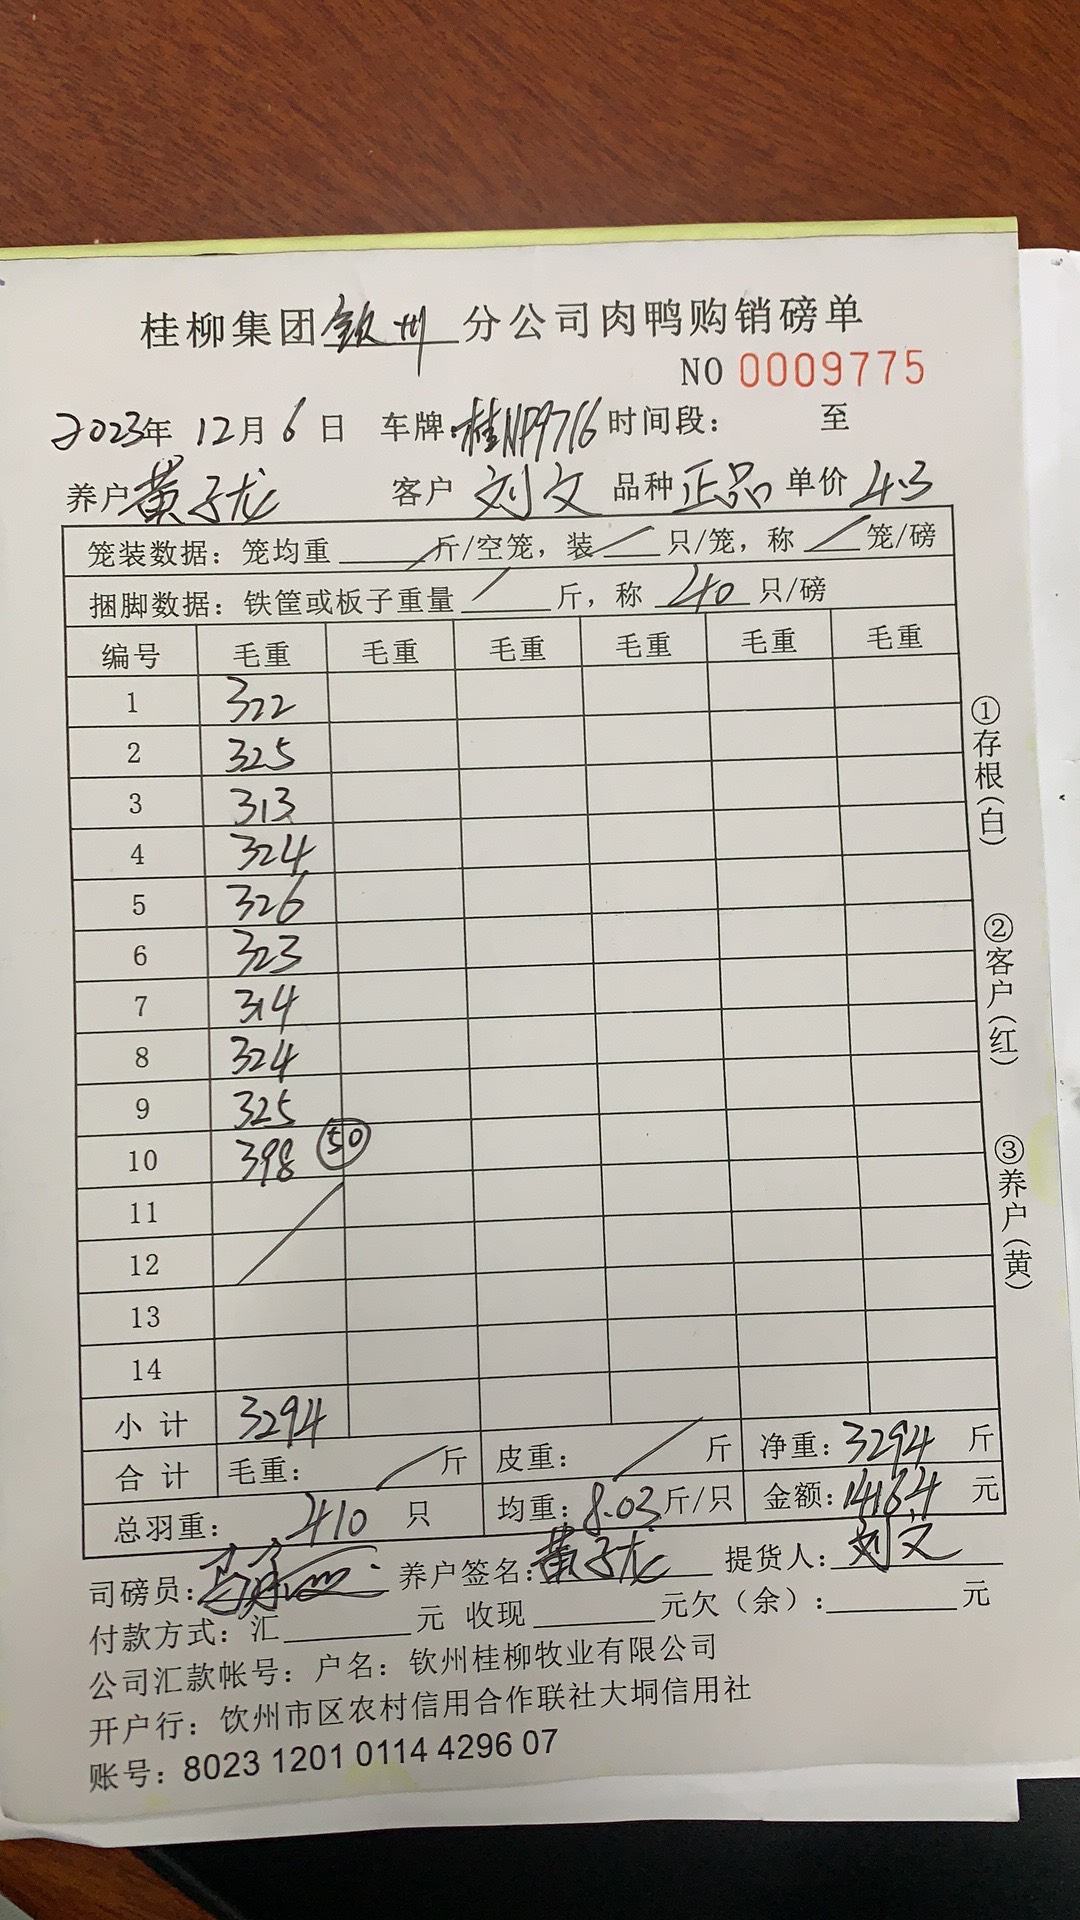 桂柳集团钦州分公司肉鸭购销磅单
NO 0009775
2023年 12月 6日 车牌:桂NP9716 时间段: 至
养户 黄子龙 客户 刘文 品种 正品 单价 4.3
笼装数据: 笼均重 / 斤/空笼, 装 / 只/笼, 称 / 笼/磅
捆脚数据: 铁筐或板子重量 / 斤, 称 40 只/磅
编号 毛重 毛重 毛重 毛重 毛重 毛重
1 322
2 325
3 313
4 324
5 326
6 323
7 314
8 324
9 325
10 398 50
11
12
13
14
小计 3294
合计 毛重: / 斤 皮重: / 斤 净重: 3294 斤
总羽重: 410 只 均重: 8.03 斤/只 金额: 14164 元
司磅员: 养户签名: 黄子龙 提货人: 刘文
付款方式: 汇 元 收现 元欠(余): 元
公司汇款帐号: 户名: 钦州桂柳牧业有限公司
开户行: 钦州市区农村信用合作联社大垌信用社
账号: 8023 1201 0114 4296 07
①存根(白)
②客户(红)
③养户(黄)